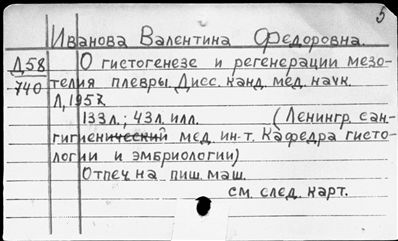 5
Иванова Валентина Федоровна.
Д58 О гистогенезе и регенерации мезо-
740 телия плевры. Дисс. канд. мед. наук.
Л, 1957.
133 л.; 43 л. илл. (Ленингр. сан-
гигиенический мед. ин-т. Кафедра гисто-
логии и эмбриологии)
Отпеч. на пиш. маш.
см. след. карт.